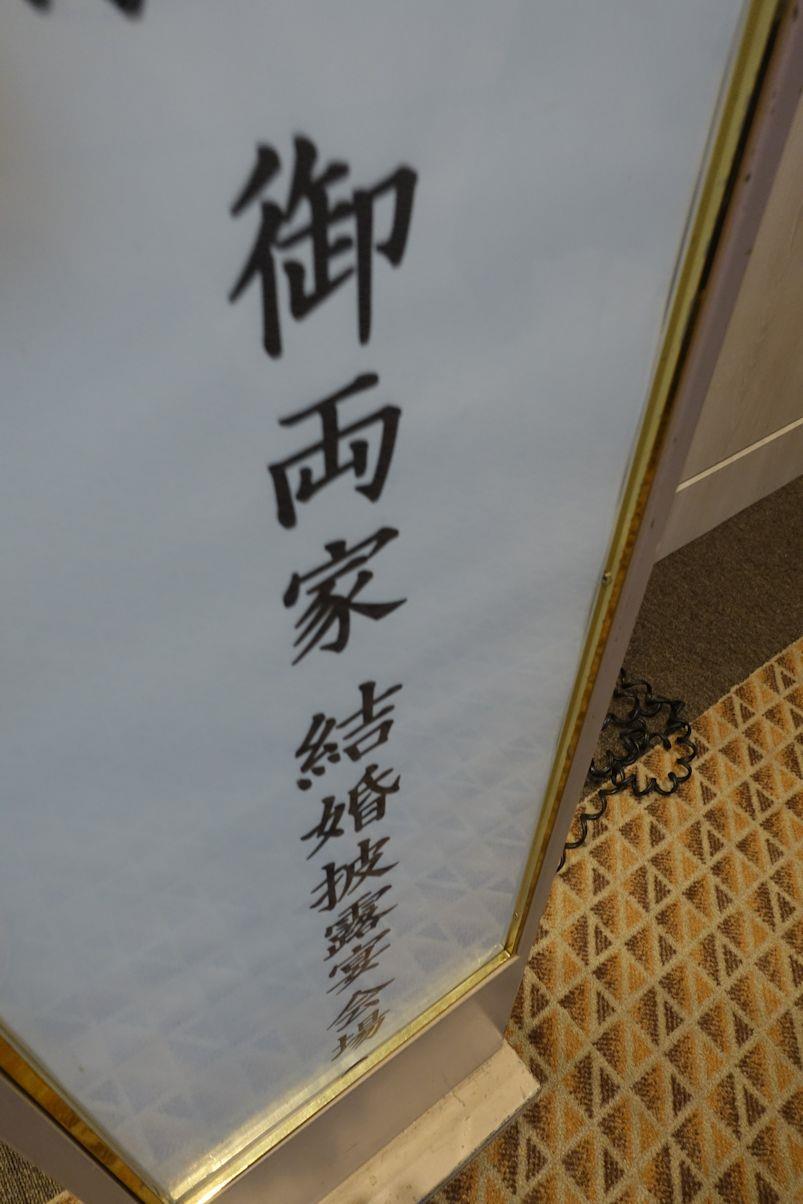 御両家結婚披露宴会場